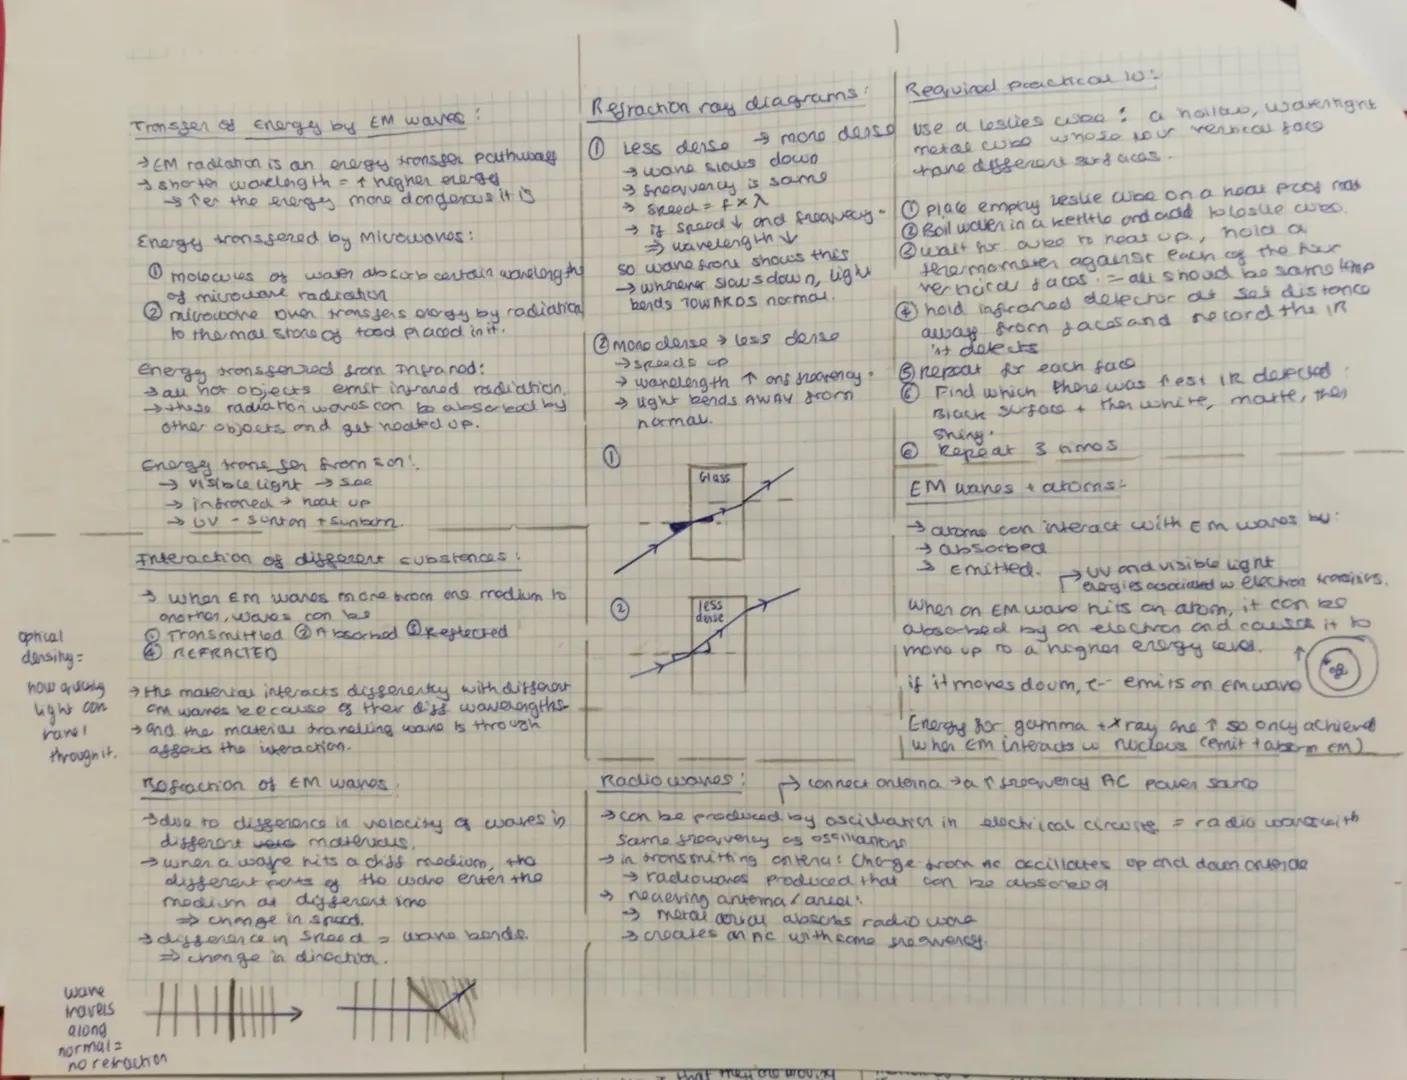 Transfer of Energy by EM waves :
→ EM radiation is an energy transfer pathway
→ shorter wavelength = ↑ higher energy
→ ↑er the energy more dangerous it is
Energy transfered by Microwaves :
① molecules of water absorb certain wavelengths
of microwave radiation
② microwave oven transfers energy by radiation
to thermal store of food placed in it.
Energy transferred from Infrared :
→ all hot objects emit infrared radiation.
→ these radiation waves can be absorbed by
other objects and get heated up.
Energy transfer from sun :
→ visible light → see
→ infrared → heat up
→ UV - suntan + sunburn.
Interaction of different substances :
→ when EM waves move from one medium to
another, waves can be
① Transmitted ② Absorbed ③ Reflected
④ REFRACTED
optical
density =
how quickly
light can
travel
through it.
→ the material interacts differently with different
EM waves because of their diff wavelengths
→ and the material travelling wave is through
affects the interaction.
Refraction of EM waves :
→ due to difference in velocity of waves in
different materials.
→ when a wave hits a diff medium, the
different parts of the wave enter the
medium at different time
⇒ change in speed.
→ difference in speed = wave bends.
⇒ change in direction.
wave
travels
along
normal =
no refraction
Refraction ray diagrams :
① Less dense → more dense
→ wave slows down
→ frequency is same
→ speed = f x λ
→ if speed ↓ and frequency =
⇒ wavelength ↓
so wave front shows this
→ whenever slows down, light
bends TOWARDS normal.
② more dense → less dense
→ speeds up
→ wavelength ↑ and frequency =
→ light bends AWAY from
normal.
①
Glass
②
less
dense
Required practical 10 :
Use a leslies cube : a hollow, watertight
metal cube whose four vertical face
have different surfaces.
① Place empty leslie cube on a heat proof mat
② Boil water in a kettle and add to leslie cube.
③ wait for cube to heat up, hold a
thermometer against each of the four
vertical faces. = all should be same temp
④ hold infrared detector at set distance
away from faces and record the IR
it detects
⑤ repeat for each face
⑥ Find which there was most IR detected :
Black surface + then white, matte, then
shiny.
⑥ Repeat 3 times
EM waves + atoms :-
→ atoms can interact with EM waves by :
→ absorbed
→ Emitted.
→ UV and visible light
energies associated w electron transfers.
When an EM wave hits an atom, it can be
absorbed by an electron and causes it to
move up to a higher energy level.
if it moves down, e- emits an EM wave
Energy for gamma + x ray are ↑ so only achieved
when EM interacts w nucleus (emit + absorb EM)
Radio waves :
→ connect antenna → a ↑ frequency AC power source
→ can be produced by oscillation in electrical circuits = radio waves with
same frequency as oscillations
→ in transmitting antenna : Charge from AC occillates up and down antenna
→ radiowaves produced that can be absorbed
→ recieving antenna / aerial :
→ metal aerial absorbs radio wave
→ creates an AC with same frequency.
that they are moving